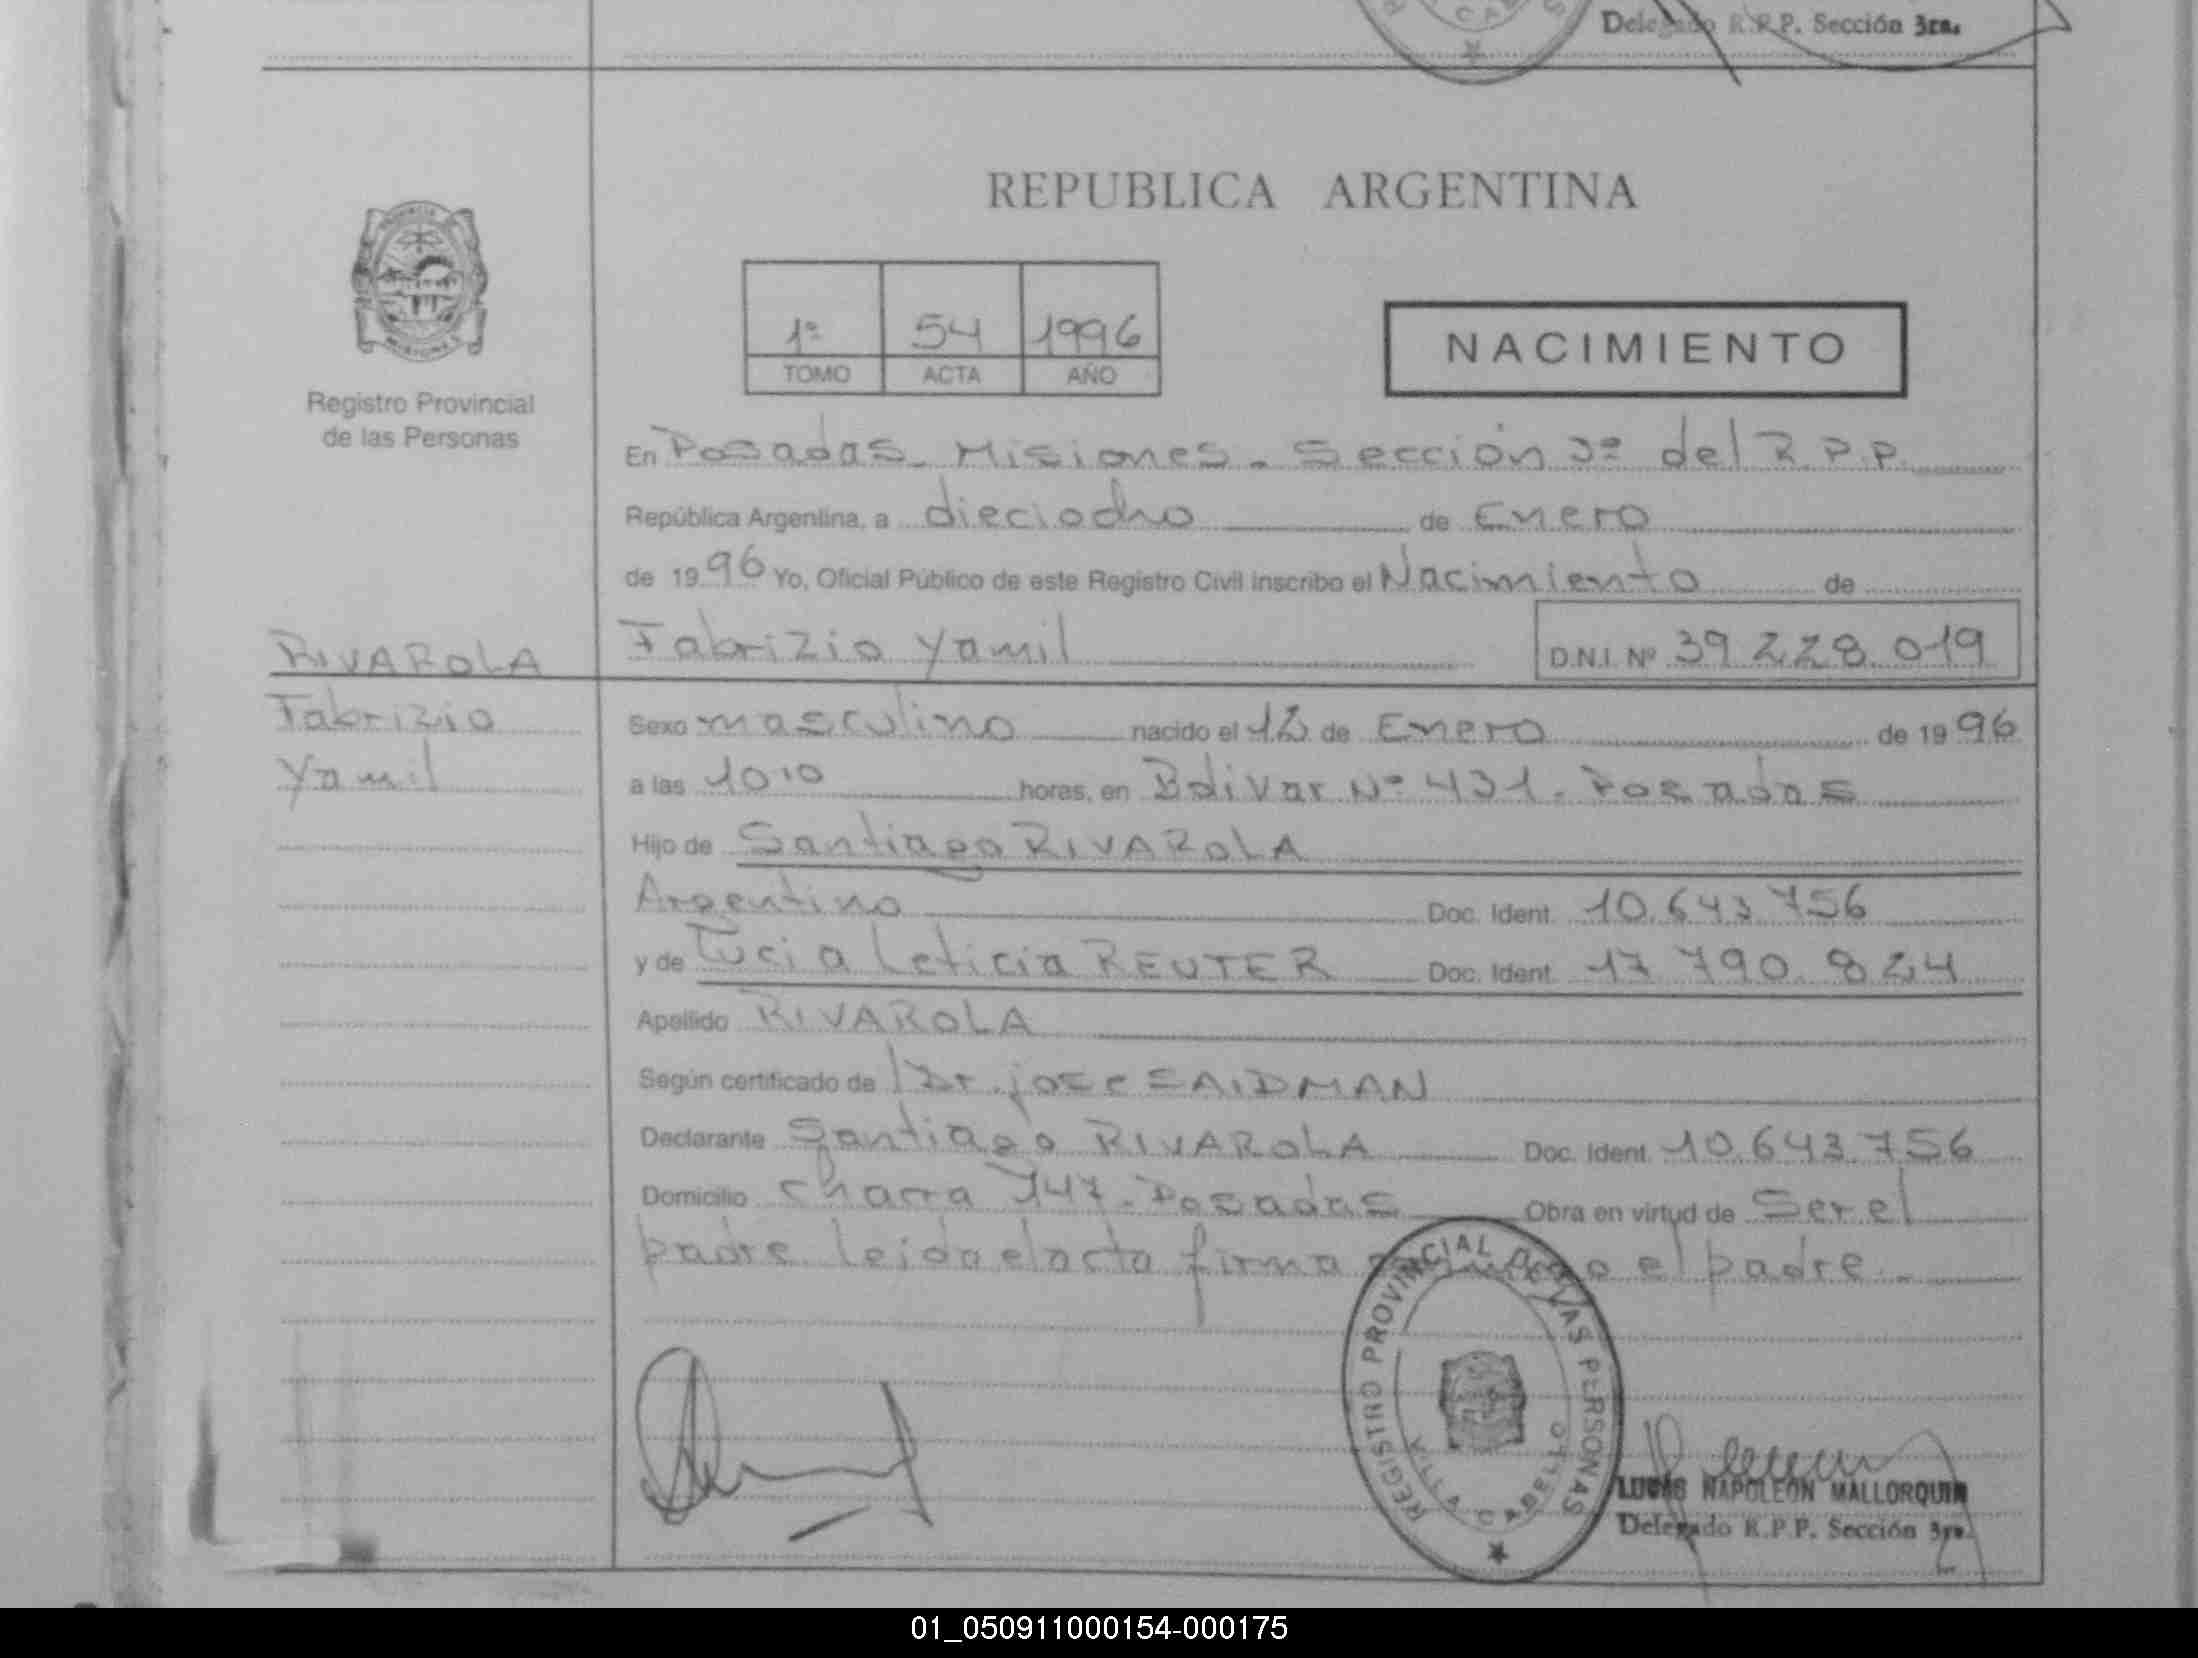 Delegado R.P.P. Sección 3ra.
REPUBLICA ARGENTINA
1º 54 1996
TOMO ACTA AÑO
NACIMIENTO
MISIONES
Registro Provincial
de las Personas
En Posadas - Misiones - Sección 3º del R.P.P.
República Argentina, a dieciocho de Enero
de 1996 Yo, Oficial Público de este Registro Civil inscribo el Nacimiento de
RIVAROLA
Fabrizio
Yamil
Fabrizio Yamil D.N.I. Nº 39.228.019
Sexo masculino nacido el de Enero de 1996
a las 10:10 horas, en Bolivar Nº 431 - Posadas
Hijo de Santiago RIVAROLA
Argentino Doc. Ident. 10.643.756
y de Lucia Leticia REUTER Doc. Ident. 17.790.824
Apellido RIVAROLA
Según certificado de Dr. Jose SAIDMAN
Declarante Santiago RIVAROLA Doc. Ident. 10.643.756
Domicilio Chacra 147 - Posadas Obra en virtud de Ser el
padre leida el acta firma el padre.-
REGISTRO PROVINCIAL DE LAS PERSONAS
VILLA CABELLO
LUCAS NAPOLEON MALLORQUIN
Delegado R.P.P. Sección 3ra.
01_050911000154-000175